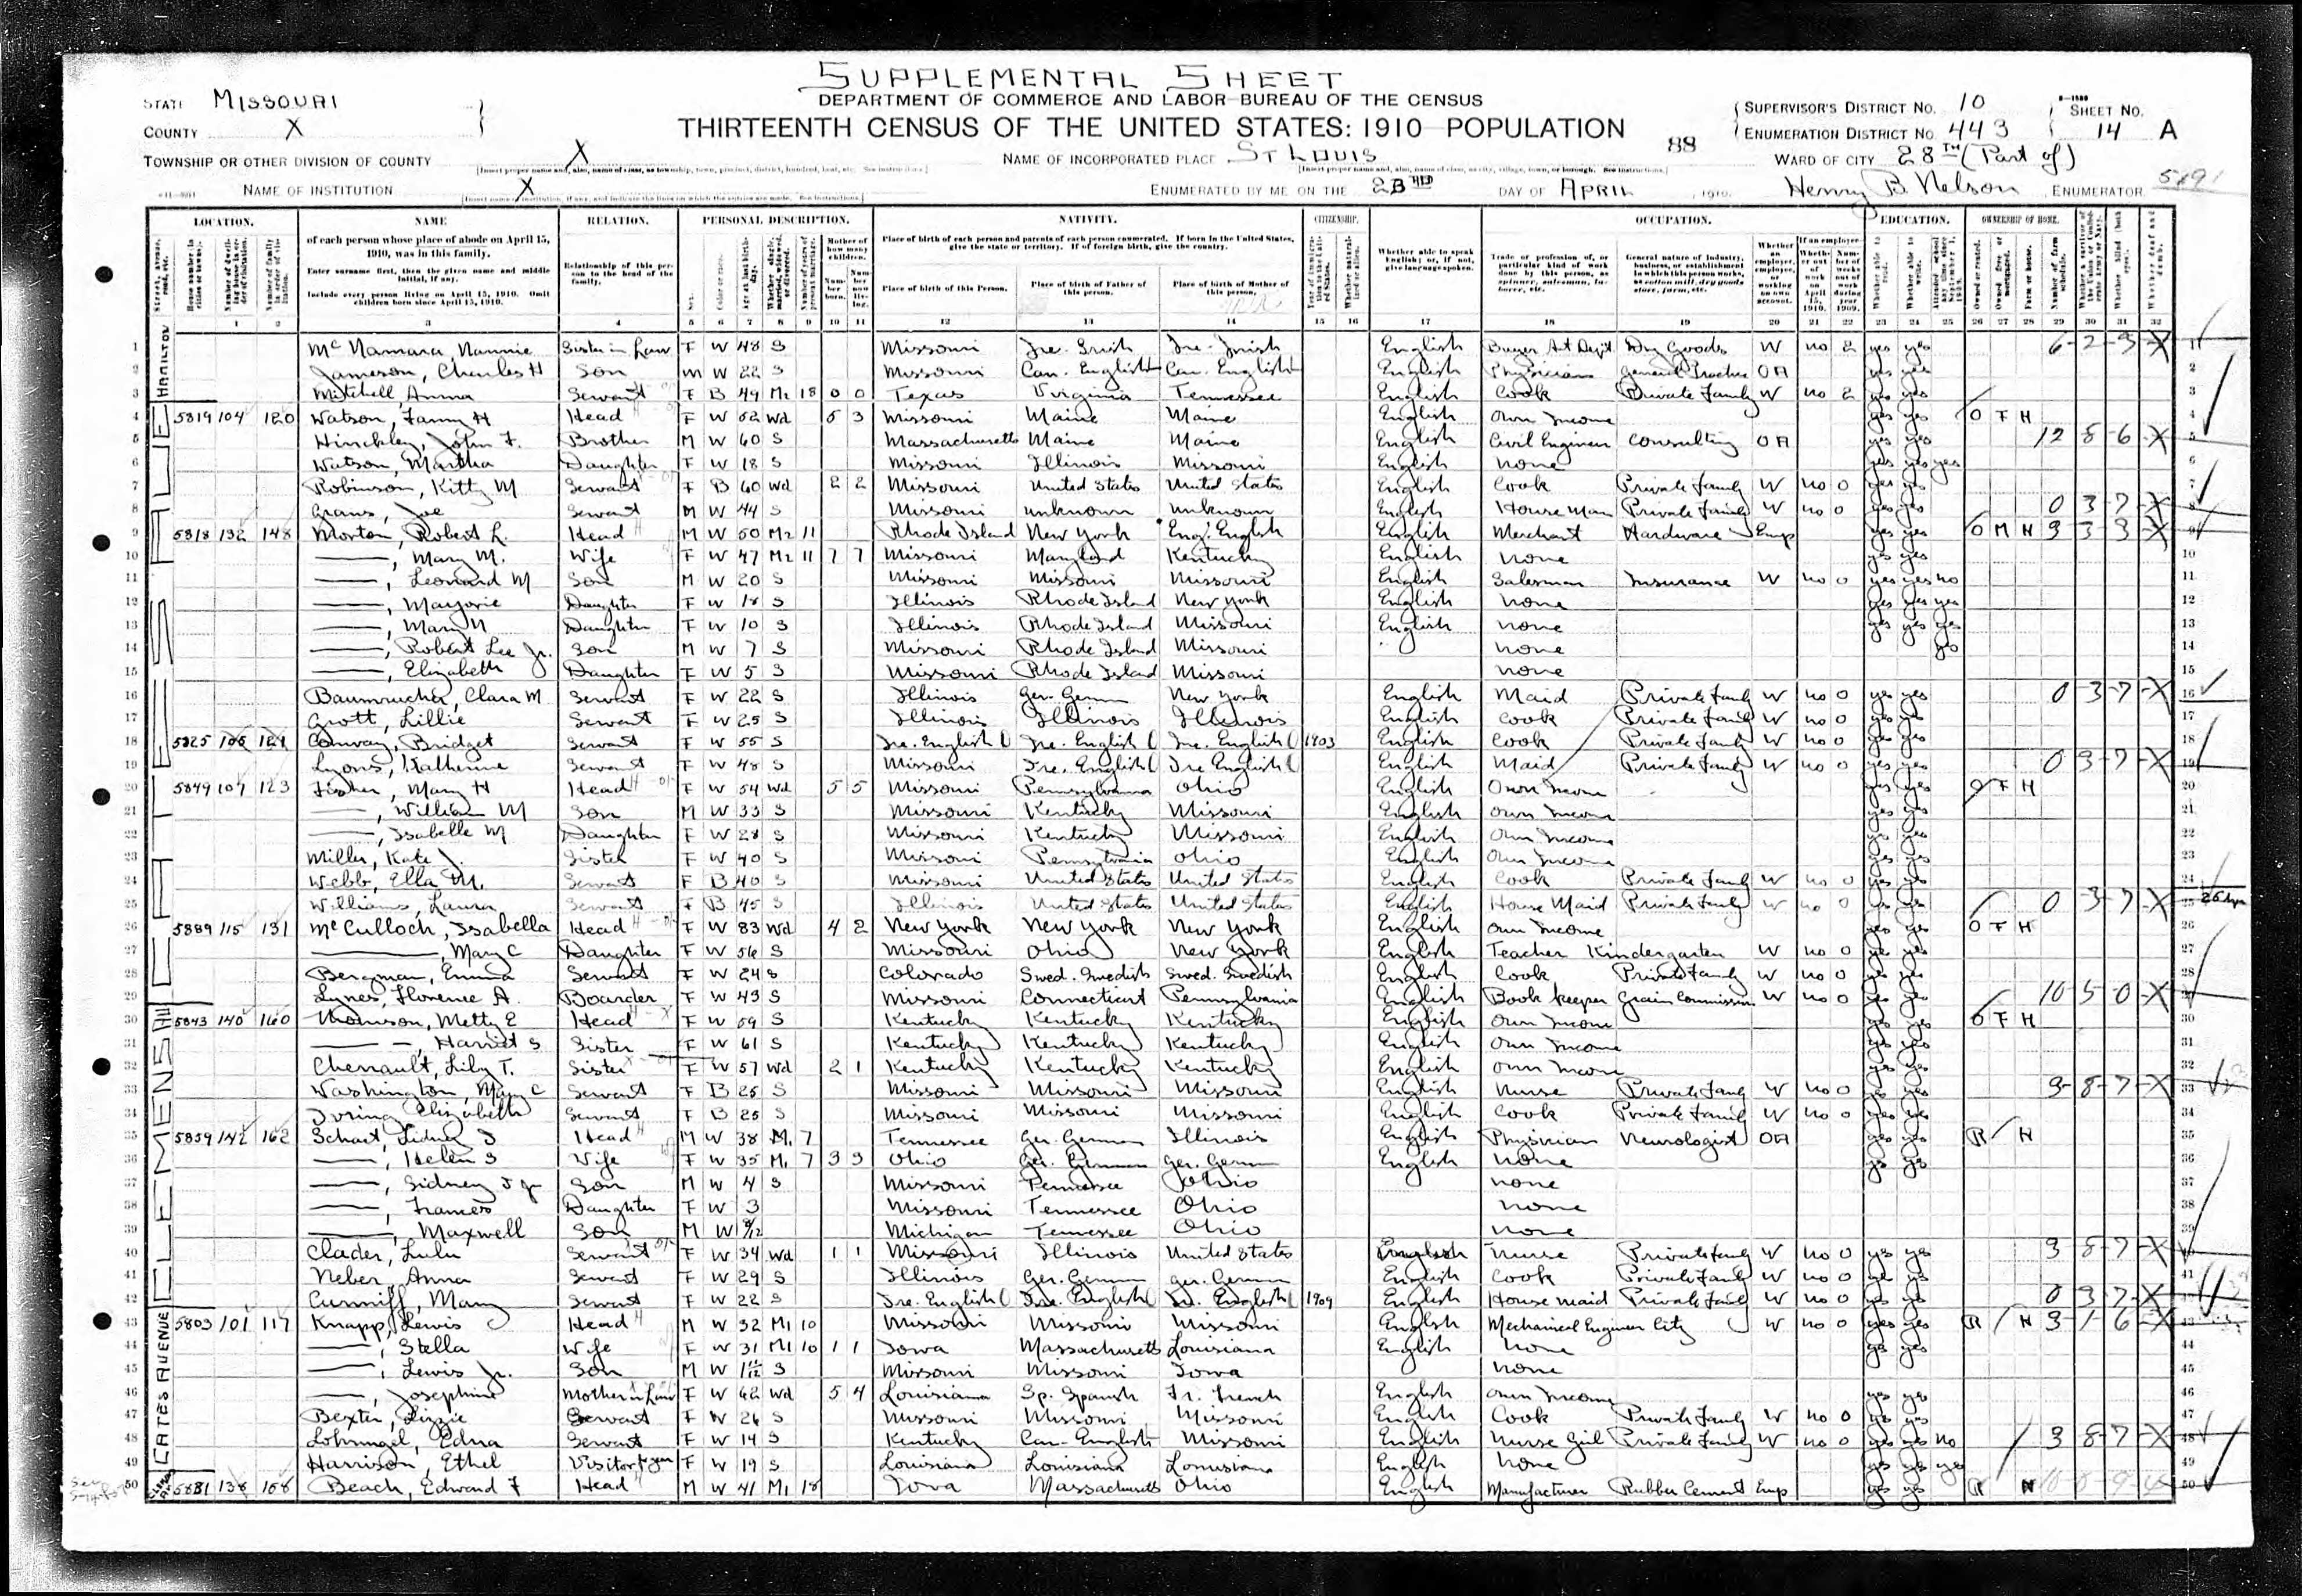 SUPPLEMENTAL SHEET
STATE MISSOURI
DEPARTMENT OF COMMERCE AND LABOR—BUREAU OF THE CENSUS
COUNTY X
THIRTEENTH CENSUS OF THE UNITED STATES: 1910—POPULATION
SUPERVISOR'S DISTRICT NO. 10
ENUMERATION DISTRICT NO. 443
SHEET NO. 14 A
88
TOWNSHIP OR OTHER DIVISION OF COUNTY X
NAME OF INCORPORATED PLACE ST LOUIS
WARD OF CITY 28TH (Part of)
NAME OF INSTITUTION X
ENUMERATED BY ME ON THE DAY OF APRIL, 1910. Henry B. Nelson, ENUMERATOR.
LOCATION. NAME RELATION. PERSONAL DESCRIPTION. NATIVITY. CITIZENSHIP. OCCUPATION. EDUCATION. OWNERSHIP OF HOME.
of each person whose place of abode on April 15, 1910, was in this family.
Enter surname first, then the given name and middle initial, if any.
Include every person living on April 15, 1910. Omit children born since April 15, 1910.
Relationship of this person to the head of the family.
Place of birth of each person and parents of each person enumerated. If born in the United States, give the state or territory. If of foreign birth, give the country.
Place of birth of this Person. Place of birth of Father of this person. Place of birth of Mother of this person.
Whether able to speak English; or, if not, give language spoken.
1 2 3 4 5 6 7 8 9 10 11 12 13 14 15 16 17 18 19 20 21 22 23 24 25 26 27 28 29 30 31 32
1 McNamara, Nannie Sister in Law F W 48 S Missouri Ire. Irish Ire. Irish English Buyer Art Dept Dry Goods W no 2 yes yes
2 Jameson, Charles H Son M W 22 S Missouri Can. English Can. English English Physician General Practice OA yes yes
3 Mitchell, Anna Servant F B 49 M2 18 0 0 Texas Virginia Tennessee English Cook Private Family W no 2 yes yes
4 5819 104 120 Watson, Fanny H Head F W 52 Wd 5 3 Missouri Maine Maine English Own Income yes yes O F H
5 Hinckley, John F. Brother M W 60 S Massachusetts Maine Maine English Civil Engineer Consulting OA yes yes
6 Watson, Martha Daughter F W 18 S Missouri Illinois Missouri English none yes yes yes
7 Robinson, Kitty M Servant F B 60 Wd 2 2 Missouri United States United States English Cook Private Family W no 0 yes yes
8 Joe Servant M W 44 S Missouri unknown unknown English House Man Private Family W no 0 yes yes
9 5818 132 148 Morton, Robert L. Head M W 50 M2 11 Rhode Island New York Eng. English English Merchant Hardware Emp yes yes O M H
10 ——, Mary M. Wife F W 47 M2 11 7 7 Missouri Maryland Kentucky English none yes yes
11 ——, Leonard M Son M W 20 S Missouri Missouri Missouri English Salesman Insurance W no 0 yes yes no
12 ——, Marjorie Daughter F W 18 S Illinois Rhode Island New York English none yes yes yes
13 ——, Mary N Daughter F W 10 S Illinois Rhode Island Missouri English none yes yes yes
14 ——, Robert Lee Jr. Son M W 7 S Missouri Rhode Island Missouri none yes
15 ——, Elizabeth Daughter F W 5 S Missouri Rhode Island Missouri none
16 Baumrucher, Clara M Servant F W 22 S Illinois Ger. German New York English Maid Private Family W no 0 yes yes
17 Grott, Lillie Servant F W 25 S Illinois Illinois Illinois English Cook Private Family W no 0 yes yes
18 5825 105 121 Conway, Bridget Servant F W 55 S Ire. English Ire. English Ire. English 1903 English Cook Private Family W no 0 yes yes
19 Lyons, Katherine Servant F W 48 S Missouri Ire. English Ire English English Maid Private Family W no 0 yes yes
20 5849 107 123 Fisher, Mary H Head F W 54 Wd 5 5 Missouri Pennsylvania Ohio English Own Income yes yes O F H
21 ——, William M Son M W 33 S Missouri Kentucky Missouri English Own Income yes yes
22 ——, Isabelle M Daughter F W 28 S Missouri Kentucky Missouri English Own Income yes yes
23 Miller, Kate J. Sister F W 40 S Missouri Pennsylvania Ohio English Own Income yes yes
24 Webb, Ella M. Servant F B 40 S Missouri United States United States English Cook Private Family W no 0 yes yes
25 Williams, Laura Servant F B 45 S Illinois United States United States English House Maid Private Family W no 0 yes yes
26 5889 115 131 McCulloch, Isabella Head F W 83 Wd 4 2 New York New York New York English Own Income yes yes O F H
27 ——, Mary C Daughter F W 56 S Missouri Ohio New York English Teacher Kindergarten W no 0 yes yes
28 Bergman, Emma Servant F W 24 S Colorado Swed. Swedish Swed. Swedish English Cook Private Family W no 0 yes yes
29 Lynes, Florence A. Boarder F W 43 S Missouri Connecticut Pennsylvania English Book keeper Grain Commission W no 0 yes yes
30 5843 140 160 Thomson, Metty E Head F W 59 S Kentucky Kentucky Kentucky English Own Income yes yes O F H
31 ——, Harriet S Sister F W 61 S Kentucky Kentucky Kentucky English Own Income yes yes
32 Chenault, Lily T. Sister F W 57 Wd 2 1 Kentucky Kentucky Kentucky English Own Income yes yes
33 Washington, Mary C Servant F B 25 S Missouri Missouri Missouri English Nurse Private Family W no 0 yes yes
34 Elizabeth Servant F B 25 S Missouri Missouri Missouri English Cook Private Family W no 0 yes yes
35 5859 142 162 Sidney I Head M W 38 M1 7 Tennessee Ger. German Illinois English Physician Neurologist OA yes yes R H
36 ——, Helen S Wife F W 35 M1 7 3 3 Ohio Ger. German Ger. German English none yes yes
37 ——, Sidney I Jr Son M W 4 S Missouri Tennessee Ohio none
38 ——, Frances Daughter F W 3 Missouri Tennessee Ohio none
39 ——, Maxwell Son M W Michigan Tennessee Ohio none
40 Clader, Lulu Servant F W 34 Wd 1 1 Missouri Illinois United States English Nurse Private Family W no 0 yes yes
41 Neber, Anna Servant F W 29 S Illinois Ger. German Ger. German English Cook Private Family W no 0 yes yes
42 Cunniff, Mary Servant F W 22 S Ire. English Ire. English Ir. English 1909 English House maid Private Family W no 0 yes yes
43 5803 101 117 Knapp, Lewis Head M W 32 M1 10 Missouri Missouri Missouri English Mechanical Engineer City W no 0 yes yes R H
44 ——, Stella Wife F W 31 M1 10 1 1 Iowa Massachusetts Louisiana English none yes yes
45 ——, Lewis Jr. Son M W S Missouri Missouri Iowa none
46 ——, Josephine Mother in Law F W 62 Wd 5 4 Louisiana Sp. Spanish Fr. French English Own Income yes yes
47 Bexter, Lizzie Servant F W 26 S Missouri Missouri Missouri English Cook Private Family W no 0 yes yes
48 Lohrungel, Edna Servant F W 14 S Kentucky Can. English Missouri English Nurse Girl Private Family W no 0 yes yes no
49 Harrison, Ethel Visitor F W 19 S Louisiana Louisiana Louisiana English none yes yes yes
50 5881 138 158 Beach, Edward F Head M W 41 M1 18 Iowa Massachusetts Ohio English Manufacturer Rubber Cement Emp yes yes R H
HAMILTON
CLEMENS AV
CATES AVENUE